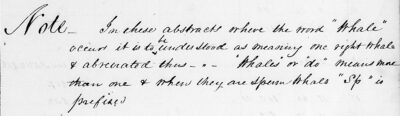 Note — In these abstracts where the word "Whale"
occurs it is to be understood as meaning one right Whale
& abreviated thus -,- "Whales" or "do" means more
than one & when they are Sperm Whale "Sp" is
prefixed